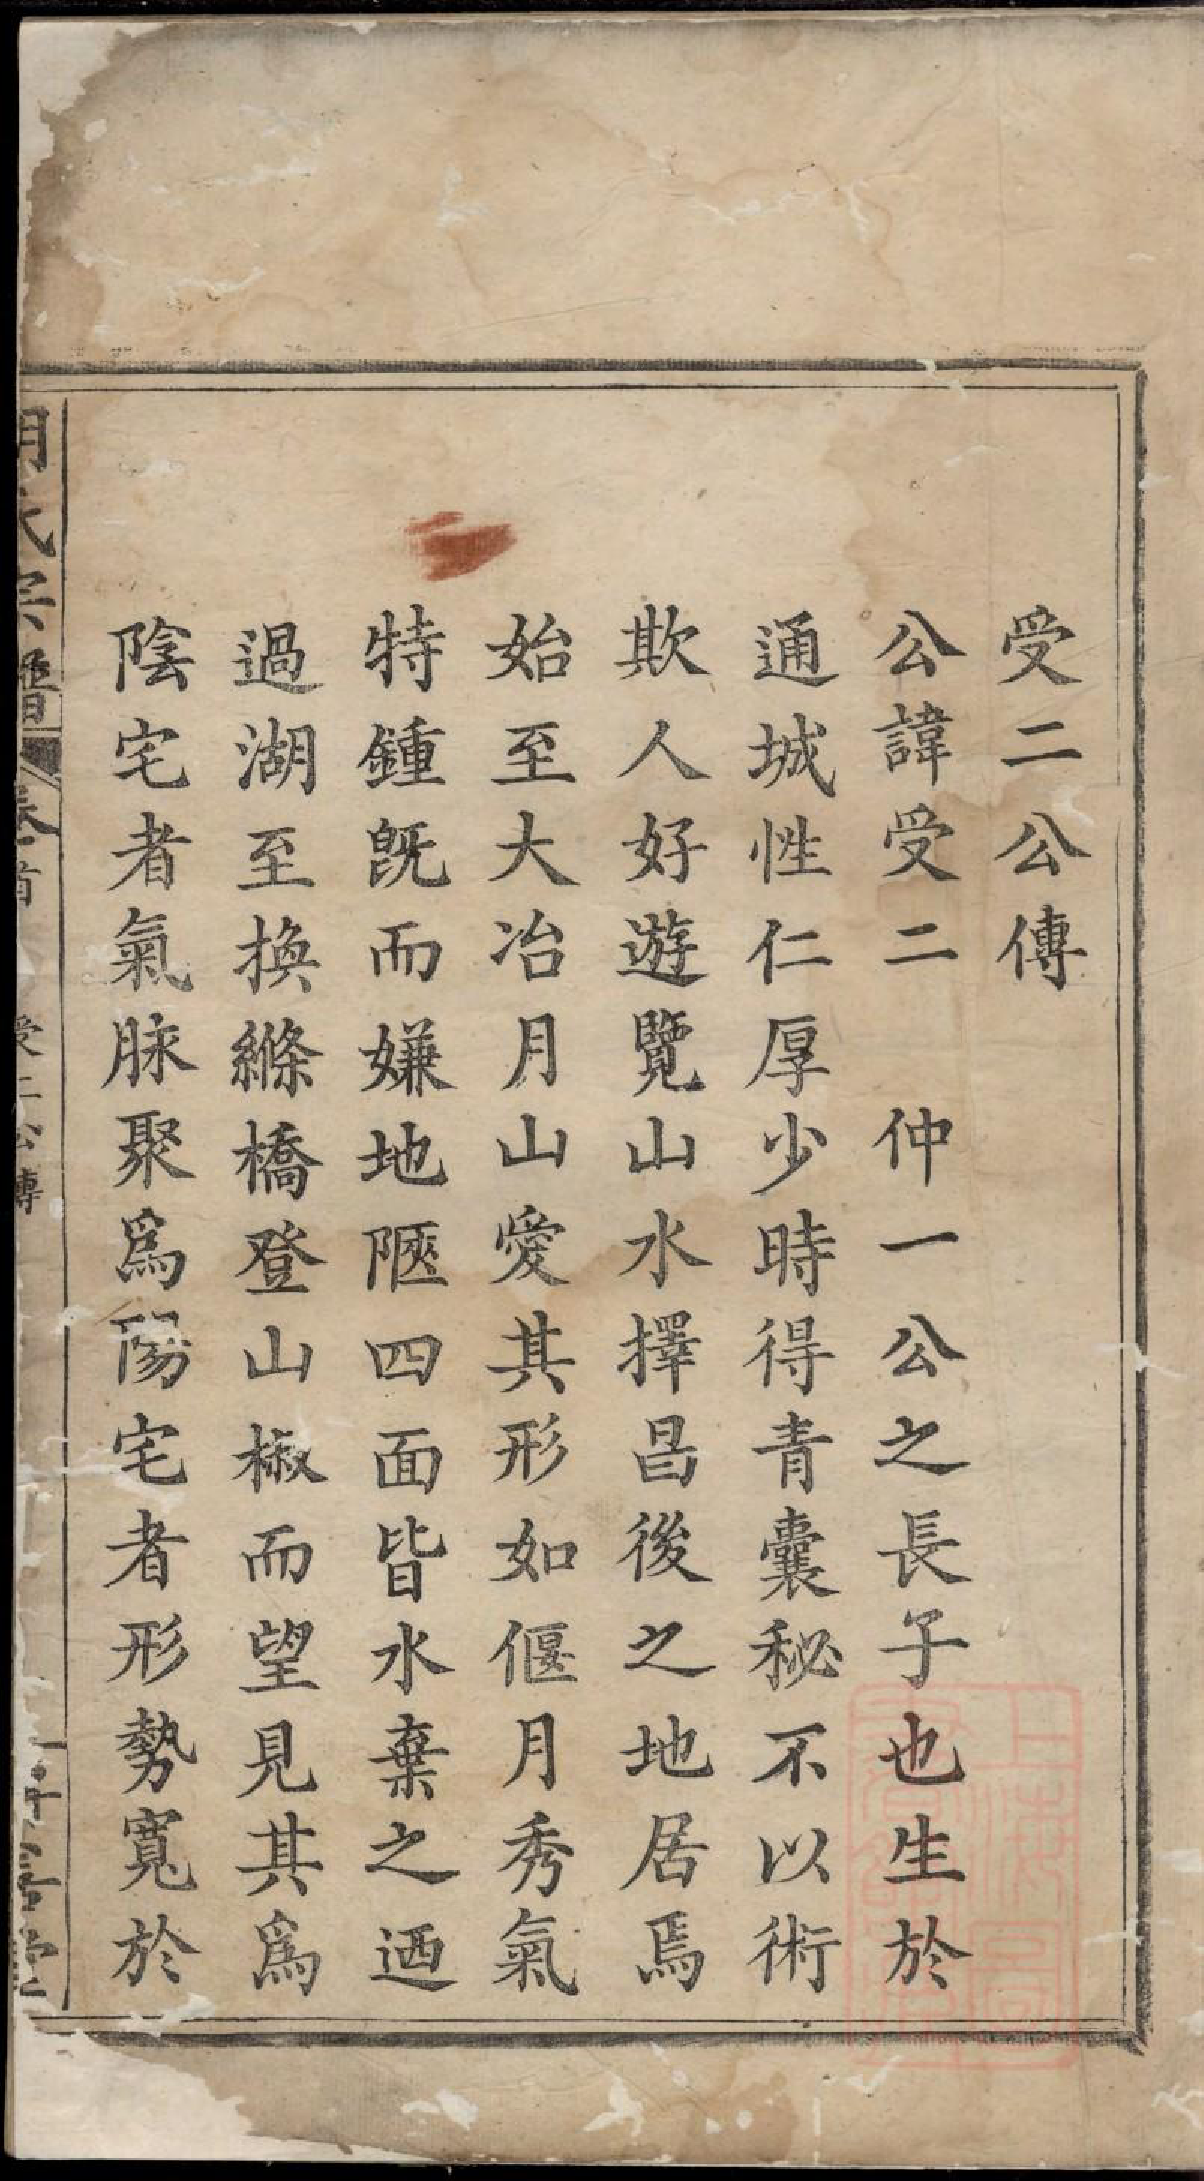 受二公傳
公諱受二　仲一公之長子也生於
通城性仁厚少時得青囊秘不以術
欺人好遊覽山水擇昌後之地居焉
始至大冶月山愛其形如偃月秀氣
特鍾旣而嫌地陿四面皆水棄之迺
過湖至換縧橋登山椒而望見其爲
陰宅者氣脉聚爲陽宅者形勢寬於
氏宗譜
卷首
受二公傳